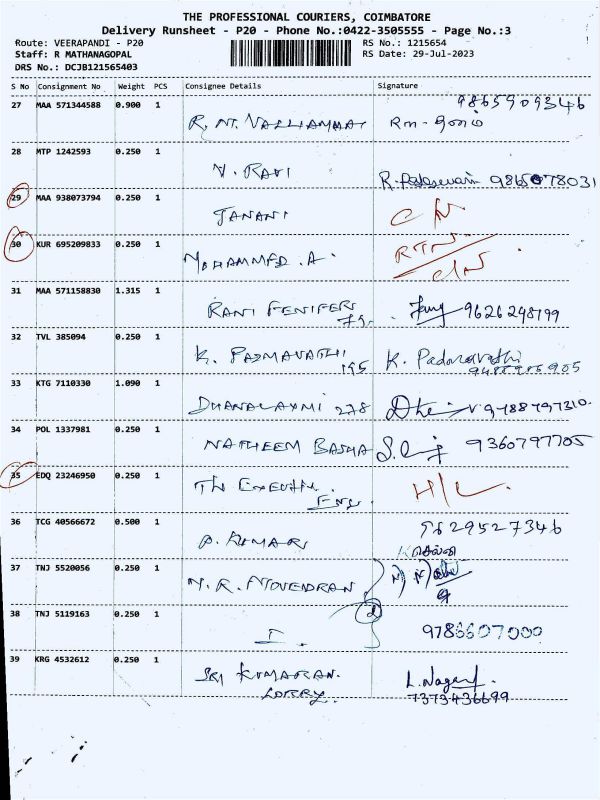 THE PROFESSIONAL COURIERS, COIMBATORE
Delivery Runsheet - P20 - Phone No.:0422-3505555 - Page No.:3
Route: VEERAPANDI - P20 RS No.: 1215654
Staff: R MATHANAGOPAL RS Date: 29-Jul-2023
DRS No.: DCJB121565403
S No Consignment No Weight PCS Consignee Details Signature
27 MAA 571344588 0.900 1 9865909346
R. NT. VALLIAMMAI
28 MTP 1242593 0.250 1
V. RAVI 9865078031
29 MAA 938073794 0.250 1
JANANI
30 KUR 695209833 0.250 1 RTN
MOHAMMED .A.
31 MAA 571158830 1.315 1
RANI FENIFERS 9626248199
32 TVL 385094 0.250 1
K. PADMAVATHI 195 K. Padmavathi
33 KTG 7110330 1.090 1
DHANALAXMI 278 9788797310
34 POL 1337981 0.250 1
NATHEEM BASHA 9360797705
35 EDQ 23246950 0.250 1
The Executive Eng. H/L
36 TCG 40566672 0.500 1 9629527346
P. KUMAR செல்வி
37 TNJ 5520056 0.250 1
M. R. NOVENDRAN
38 TNJ 5119163 0.250 1
9786607000
39 KRG 4532612 0.250 1
SRI KUMARAN. L. Nagaraj
LORRY. 7373436699